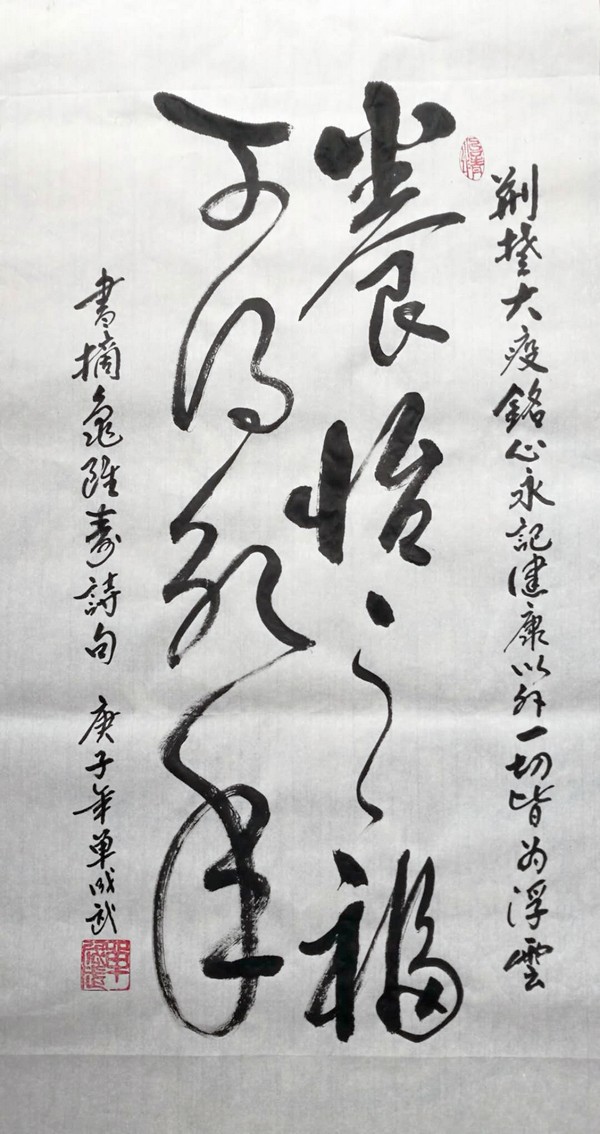 荆楚大疫銘心永記健康以外一切皆为浮雲
養怡之福
可得永年
書摘龜雖壽詩句 庚子年單成武